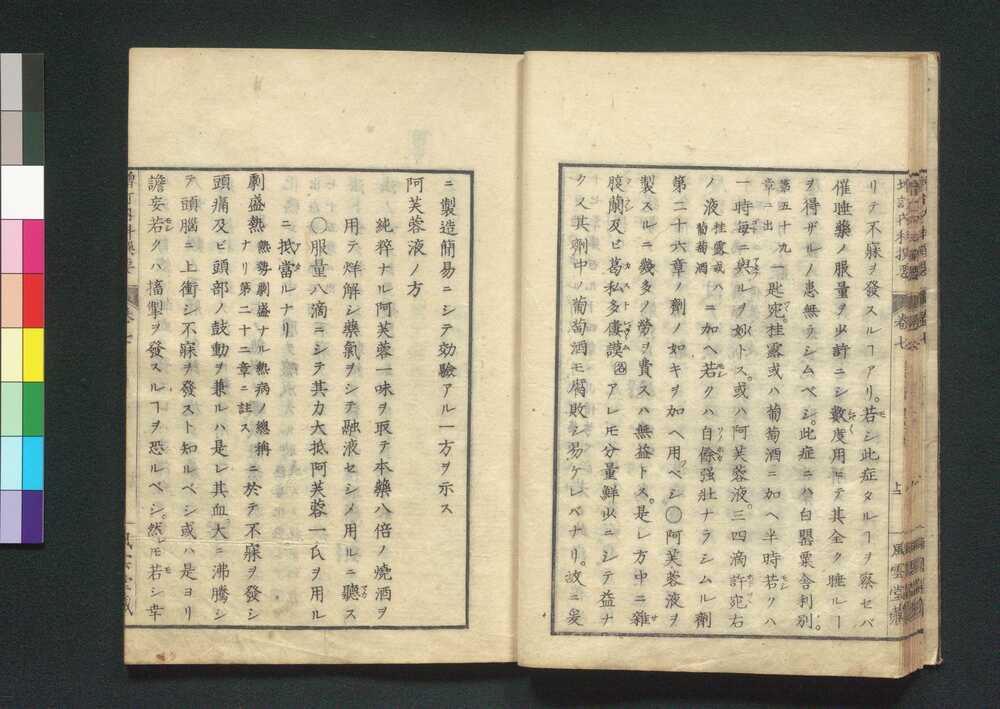 リテ不寐ヲ發スルヿアリ。若シ此症タルヿヲ察セバ
催睡藥ノ服量ヲ少許ニシ數度用ヒテ其全ク睡ルヿ
ヲ得ザルノ患無ラシムベシ。此症ニハ白罌粟舎利別
第五十九章ニ出
一匙宛桂露或ハ葡萄酒ニ加ヘ半時若クハ
一時毎ニ與ルヲ妙トス。或ハ阿芙蓉液。三四滴許宛右
ノ液
桂露或ハ葡萄酒
ニ加ヘ若クハ自餘强壯ナラシムル劑
第二十六章ノ劑ノ如キヲ加ヘ用ベシ〇阿芙蓉液ヲ
製スルニ幾多ノ勞ヲ費スハ無益トス。是レ方中ニ雜
腹蘭及ビ葛私多僂謨
名
アレ𪜈分量鮮少ニシテ益ナ
ク又其劑中ノ葡萄酒モ腐敗シ易ケレバナリ。故ニ爰
卷七
上
風雲堂藏
ニ製造簡易ニシテ効驗アル一方ヲ示ス
阿芙蓉液ノ方
純粹ナル阿芙蓉一味ヲ取テ本藥八倍ノ燒酒ヲ
用テ烊解シ藥氣ヲシテ融液セシメ用ルニ聽ス
〇服量八滴ニシテ其力大抵阿芙蓉一氏ヲ用ル
ニ抵當ルナリ
劇盛熱
熱勢劇盛ナル熱病ノ總稱ナリ第二十二章ニ註ス
ニ於テ不寐ヲ發シ
頭痛及ビ頭部ノ鼓動ヲ兼ルハ是レ其血大ニ沸騰シ
テ頭腦ニ上衝シ不寐ヲ發スト知ルベシ或ハ是ヨリ
譫妄若クハ搐掣ヲ發スルヿヲ恐ルベシ。然𪜈若シ幸